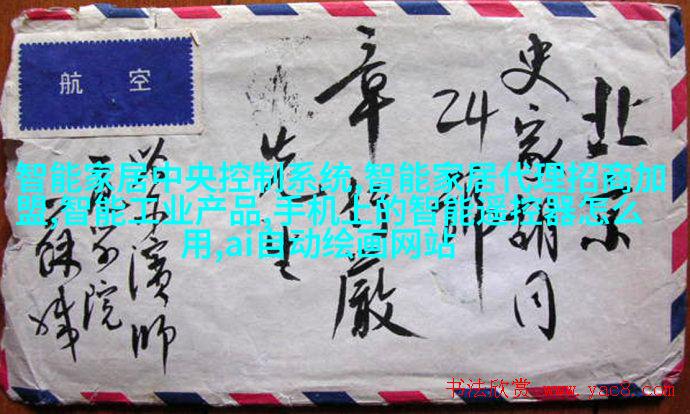 航空
北京
史家胡同
24號
章
先生
濱師
院
智能家居中央控制系统,智能家居代理招商加
盟,智能工业产品,手机上的智能遥控器怎么
用,ai自动绘画网站
书法欣赏 www.yac8.com